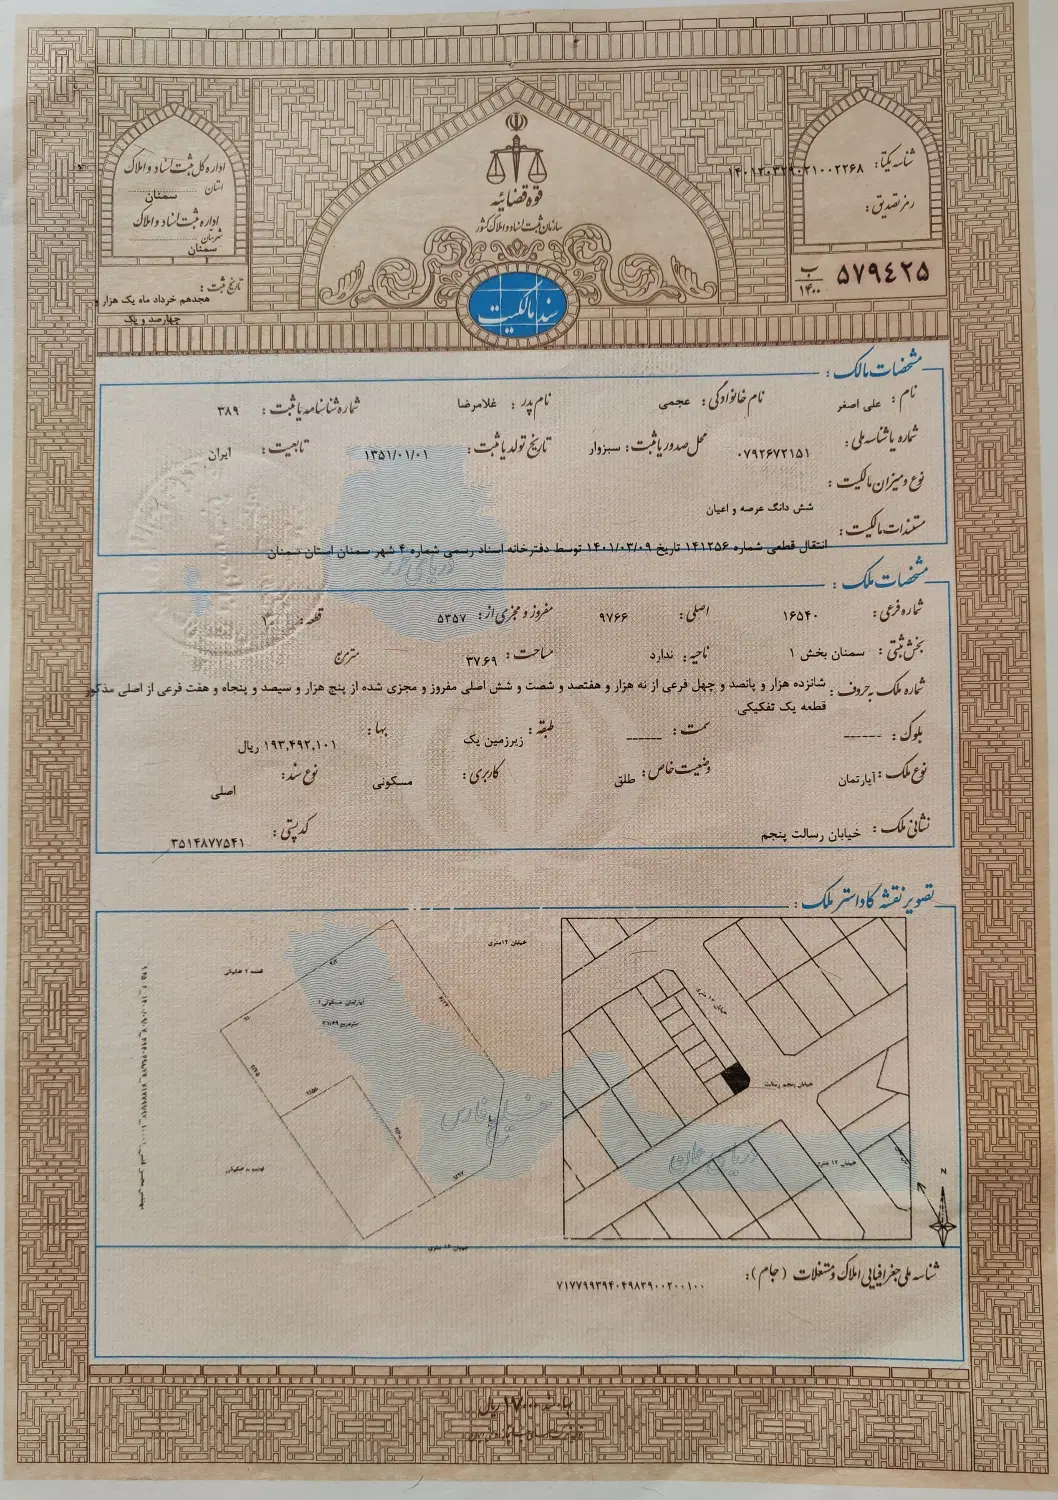 قوه قضائیه
سازمان ثبت اسناد و املاک کشور
سند مالکیت
شناسه یکتا:
رمز تصدیق:
۵۷۹۴۲۵ ب ۱۴۰۰
اداره کل ثبت اسناد و املاک
استان سمنان
اداره ثبت اسناد و املاک
شهرستان سمنان
تاریخ ثبت:
هجدهم خرداد ماه یک هزار و
چهارصد و یک
مشخصات مالک:
نام: علی اصغر نام خانوادگی: عجمی نام پدر: غلامرضا شماره شناسنامه یا ثبت: ۳۸۹
شماره یا شناسه ملی: ۰۷۹۲۶۷۲۱۵۱ محل صدور یا ثبت: سبزوار تاریخ تولد یا ثبت: ۱۳۵۱/۰۱/۰۱ تابعیت: ایران
نوع و میزان مالکیت:
شش دانگ عرصه و اعیان
مستندات مالکیت:
انتقال قطعی شماره ۱۴۱۲۵۶ تاریخ ۱۴۰۱/۰۳/۰۹ توسط دفترخانه اسناد رسمی شماره ۴ شهر سمنان استان سمنان
مشخصات ملک:
شماره فرعی: ۱۶۵۴۰ اصلی: ۹۷۶۶ مفروز و مجزی از: ۵۳۵۷ قطعه: ۱
بخش ثبتی: سمنان بخش ۱ ناحیه: ندارد مساحت: ۳۷.۶۹ متر مربع
شماره ملک به حروف: شانزده هزار و پانصد و چهل فرعی از نه هزار و هفتصد و شصت و شش اصلی مفروز و مجزی شده از پنج هزار و سیصد و پنجاه و هفت فرعی از اصلی مذکور
قطعه یک تفکیکی
بلوک: ------ سمت: ------ طبقه: زیرزمین یک بها: ۱۹۳,۴۹۲,۱۰۱ ریال
نوع ملک: آپارتمان وضعیت خاص: طلق کاربری: مسکونی نوع سند: اصلی
نشانی ملک: خیابان رسالت پنجم کدپستی: ۳۵۱۴۸۷۷۵۴۱
تصویر نقشه کاداستر ملک:
خیابان ۱۲ متری
قطعه ۲ تفکیکی
آپارتمان مسکونی ۱
خیابان پنجم رسالت
خیابان ۱۲ متری
خلیج فارس
دریای عمان
N
شناسه ملی جغرافیایی املاک و مستغلات (جام): ۷۱۷۷۹۹۳۹۴۰۴۹۸۳۹۰۰۲۰۰۱۰۰